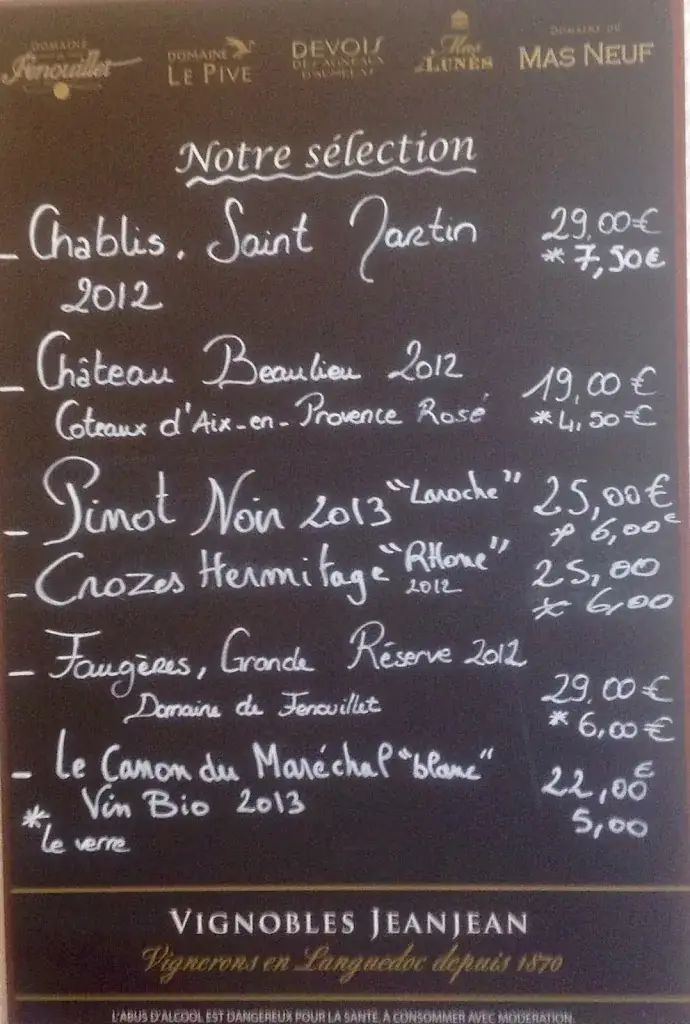 DOMAINE Fenouillet
DOMAINE LE PIVE
DEVOIS DES AGNEAUX D'AUMELAS
Mas LUNÈS
DOMAINE DU MAS NEUF
Notre sélection
- Chablis. Saint Martin 29,00€
2012 * 7,50€
- Château Beaulieu 2012 19,00€
Coteaux d'Aix-en-Provence Rosé *4,50€
- Pinot Noir 2013 "Laroche" 25,00€
* 6,00€
- Crozes Hermitage "Rhone" 25,00
2012 * 6,00
- Faugères, Grande Réserve 2012
Domaine de Fenouillet 29,00€
* 6,00€
- Le Canon du Maréchal "blanc" 22,00€
Vin Bio 2013 5,00
* Le verre
VIGNOBLES JEANJEAN
Vignerons en Languedoc depuis 1870
L'ABUS D'ALCOOL EST DANGEREUX POUR LA SANTÉ, À CONSOMMER AVEC MODÉRATION.